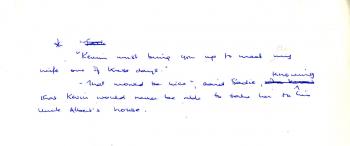 "Kevin must bring you up to meet my
wife one of these days."
"That would be nice", said Sadie, knowing
that Kevin would never be able to take her to his
Uncle Albert's house.